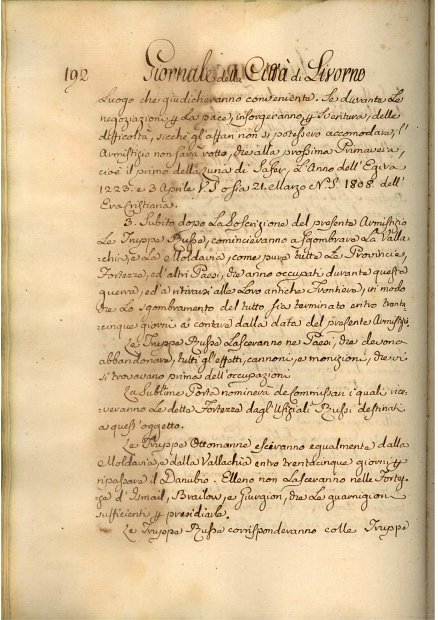 192 Giornale della Città di Livorno
Luogo che giudicheranno conveniente. Se durante Le
negoziazioni p La pace, insorgeranno p Aventura, delle
difficoltà, sicchè gl'affari non si potessero accomodare, l'
Armistizio non sarà rotto, che alla prossima Primavera,
cioè il primo della Luna di Safer, L'Anno dell'Egira
1223 e 3 Aprile V.S. o sia 21. Marzo N.S. 1808 dell'
Era Cristiana.
3. Subito dopo La Soscrizione del presente Armistizio
Le Truppe Russe, comincieranno a sgombrare La Valla-
chia, e La Moldavia, come pure tutte Le Provincie,
Fortezze, ed altri Paesi, che anno occupati durante questa
guerra, ed a ritirarsi alle Loro antiche Frontiere, in modo
che Lo sgombramento del tutto sia terminato entro trenta-
cinque giorni a contare dalla data del presente Armistizio.
Le Truppe Russe Lasceranno ne' Paesi, che devono
abbandonare, tutti gl'effetti, cannoni, e monizioni, che vi
si trovavano prima dell'occupazioni
La Sublime Porta nominerà de Commissari i quali rice-
veranno Le dette Fortezze dagl'Ufiziali Russi destinati
a quest'oggetto.
Le Truppe Ottomanne esciranno egualmente dalla
Moldavia, e dalla Vallachia entro trentacinque giorni p
ripassare il Danubio. Elleno non Lasceranno nelle Fortez-
ze d'Ismail, Brailow, e Giurgion, che Le guarnigioni
sufficienti p presidiarle.
Le Truppe Russe corrisponderanno colle Truppe